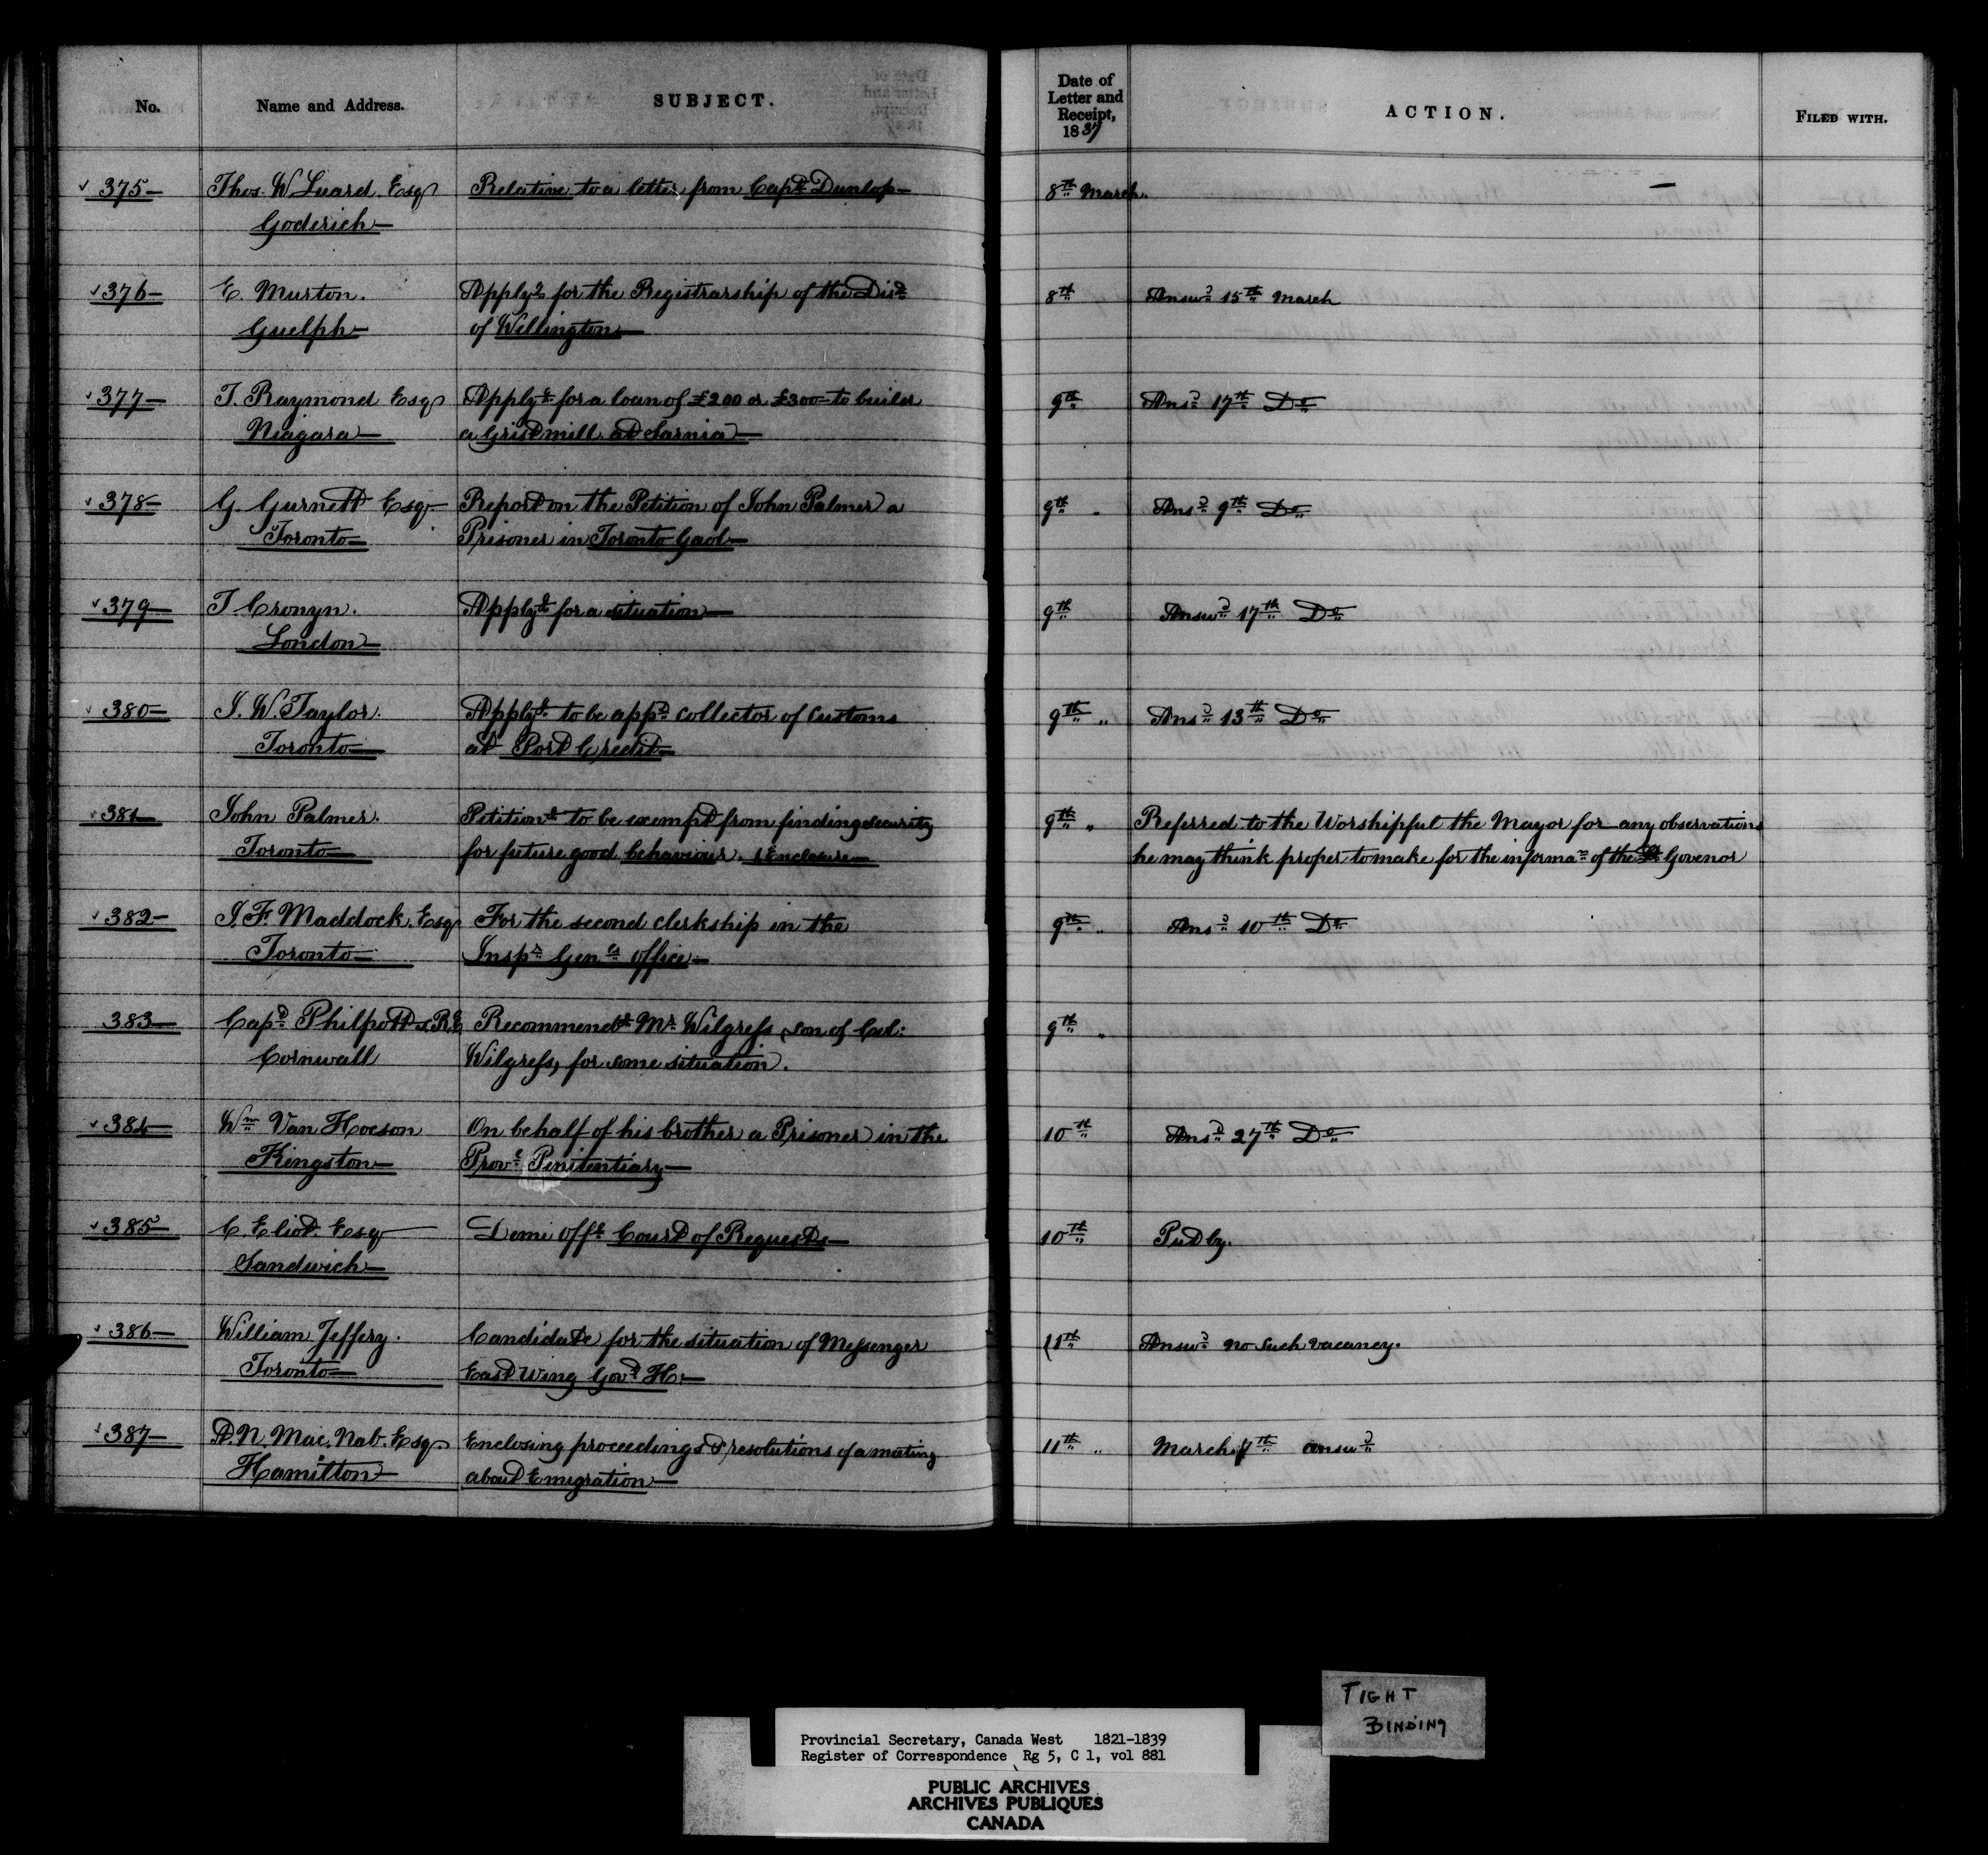 No. Name and Address. SUBJECT. Date of Letter and Receipt, 1837 ACTION. FILED WITH.
375 Thos. W Luard. Esq Relative to a letter from Capt Dunlop 8th March. —
Goderich
376 E. Murton. Applyg for the Registrarship of the Dist 8th Answd 15th March
Guelph of Wellington
377 T. Raymond Esq Applyg for a loan of £200 or £300 to builer 9th Ansd 17th Do
Niagara a Grist mill at Sarnia
378 G. Gurnett Esq Report on the Petition of John Palmer a 9th " Ansd 9th Do
Toronto Prisoner in Toronto Gaol
379 T. Cronyn. Applyg for a situation 9th Answd 17th Do
London
380 J. W. Taylor. Applyg to be appd Collector of Customs 9th " Ansd 13th Do
Toronto at Port Credit
381 John Palmer. Petitiong to be exempt from finding security 9th " Referred to the Worshipful the Mayor for any observations
Toronto for future good behaviour. 1 Enclosure he may think proper to make for the informan of the Lt Govenor
382 J. F. Maddock. Esq For the second clerkship in the 9th " Ansd 10th Do
Toronto Inspr Genls office
383 Capt Philpotts R.E Recommendg Mr Wilgress, son of Col: 9th "
Cornwall Wilgress, for some situation.
384 Wm Van Hoeson On behalf of his brother a Prisoner in the 10th Ansd 27th Do
Kingston Provl Penitentiary
385 C. Eliot. Esq Demi Offl Court of Requests 10th Put by.
Sandwich
386 William Jeffery. Candidate for the situation of Messenger 11th Answd no such vacancy.
Toronto East wing Govt H.
387 A. N. Mac. Nab. Esq. Enclosing proceedings & resolutions of a meeting 11th " March 17th answd
Hamilton about Emigration
TIGHT
BINDING
Provincial Secretary, Canada West 1821-1839
Register of Correspondence Rg 5, C 1, vol 881
PUBLIC ARCHIVES
ARCHIVES PUBLIQUES
CANADA